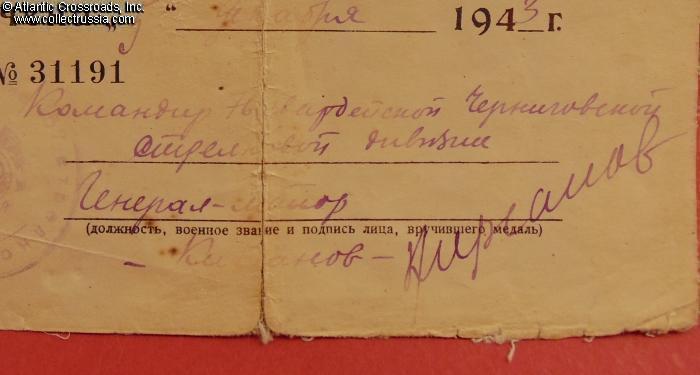 © Atlantic Crossroads, Inc.
www.collectrussia.com
" 1943 г.
№ 31191
Командир 76 Гвардейской Черниговской
стрелковой дивизии
Генерал-майор
(должность, военное звание и подпись лица, вручившего медаль)
- Кирсанов - Кирсанов